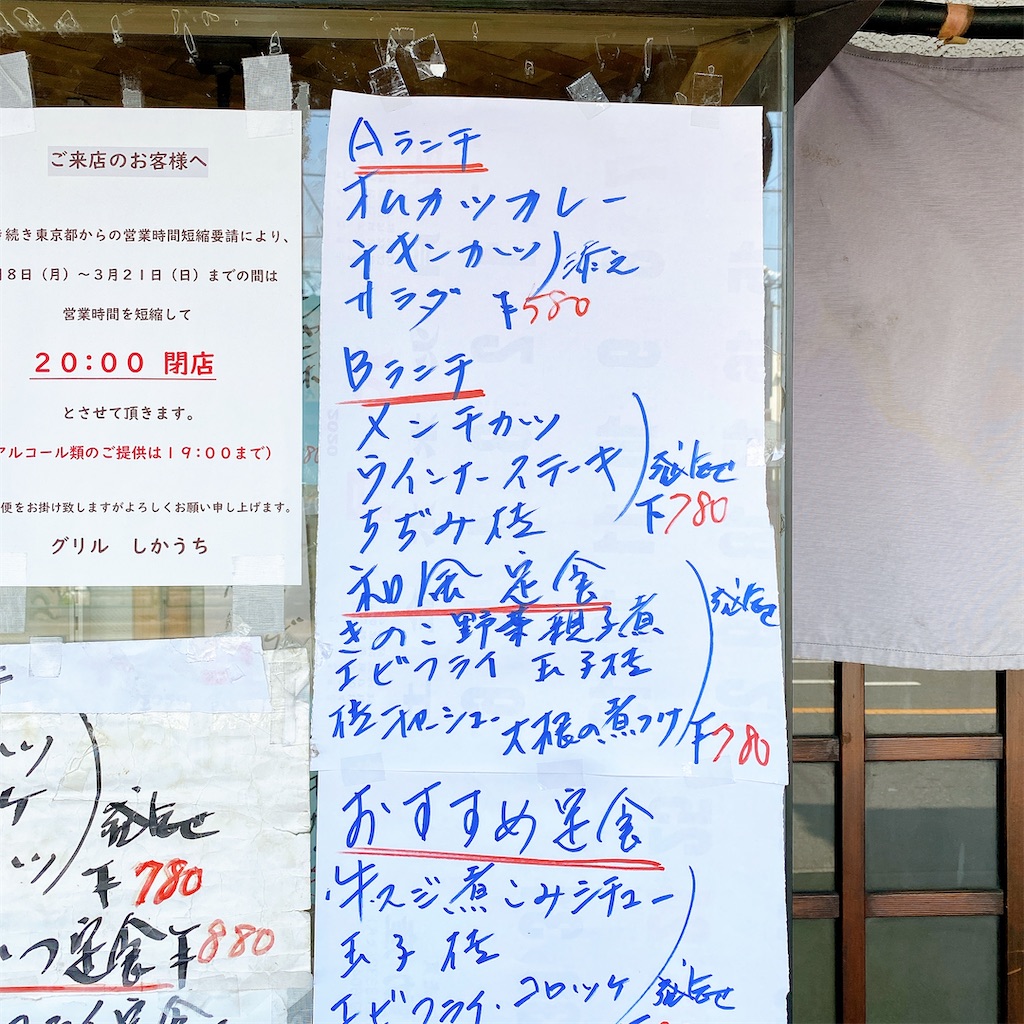 ご来店のお客様へ
続き東京都からの営業時間短縮要請により、
8日（月）～3月21日（日）までの間は
営業時間を短縮して
20：00 閉店
とさせて頂きます。
アルコール類のご提供は19：00まで）
便をお掛け致しますがよろしくお願い申し上げます。
グリル しかうち
Aランチ
オムカツカレー
チキンカツ
サラダ
添え
¥580
Bランチ
メンチカツ
ウインナーステーキ
ちぢみ
盛合せ
¥780
和食定食
きのこ野菜親子煮
エビフライ 玉子
大根の煮つけ
盛合せ
¥780
おすすめ定食
牛スジ煮こみシチュー
玉子
エビフライ・コロッケ
盛合せ
盛合せ
¥780
定食¥880
定食